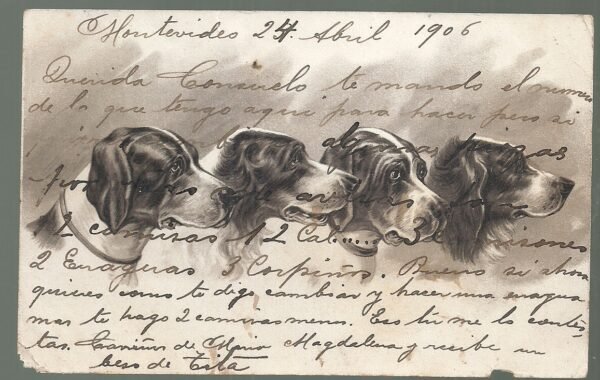 Montevideo 24 Abril 1906
Querida Consuelo te mando el numero
de lo que tengo aqui para hacer pero si
algunas piezas
por
12 camisas 12 Cal..... 3
2 Enaguas 3 Corpiños. Bueno si ahora
quieres como te digo cambiar y hacer una enagua
mas te hago 2 camisas menos. Eso tu me lo contes-
tas. Cariños de Maria Magdalena y recibe un
beso de Tita